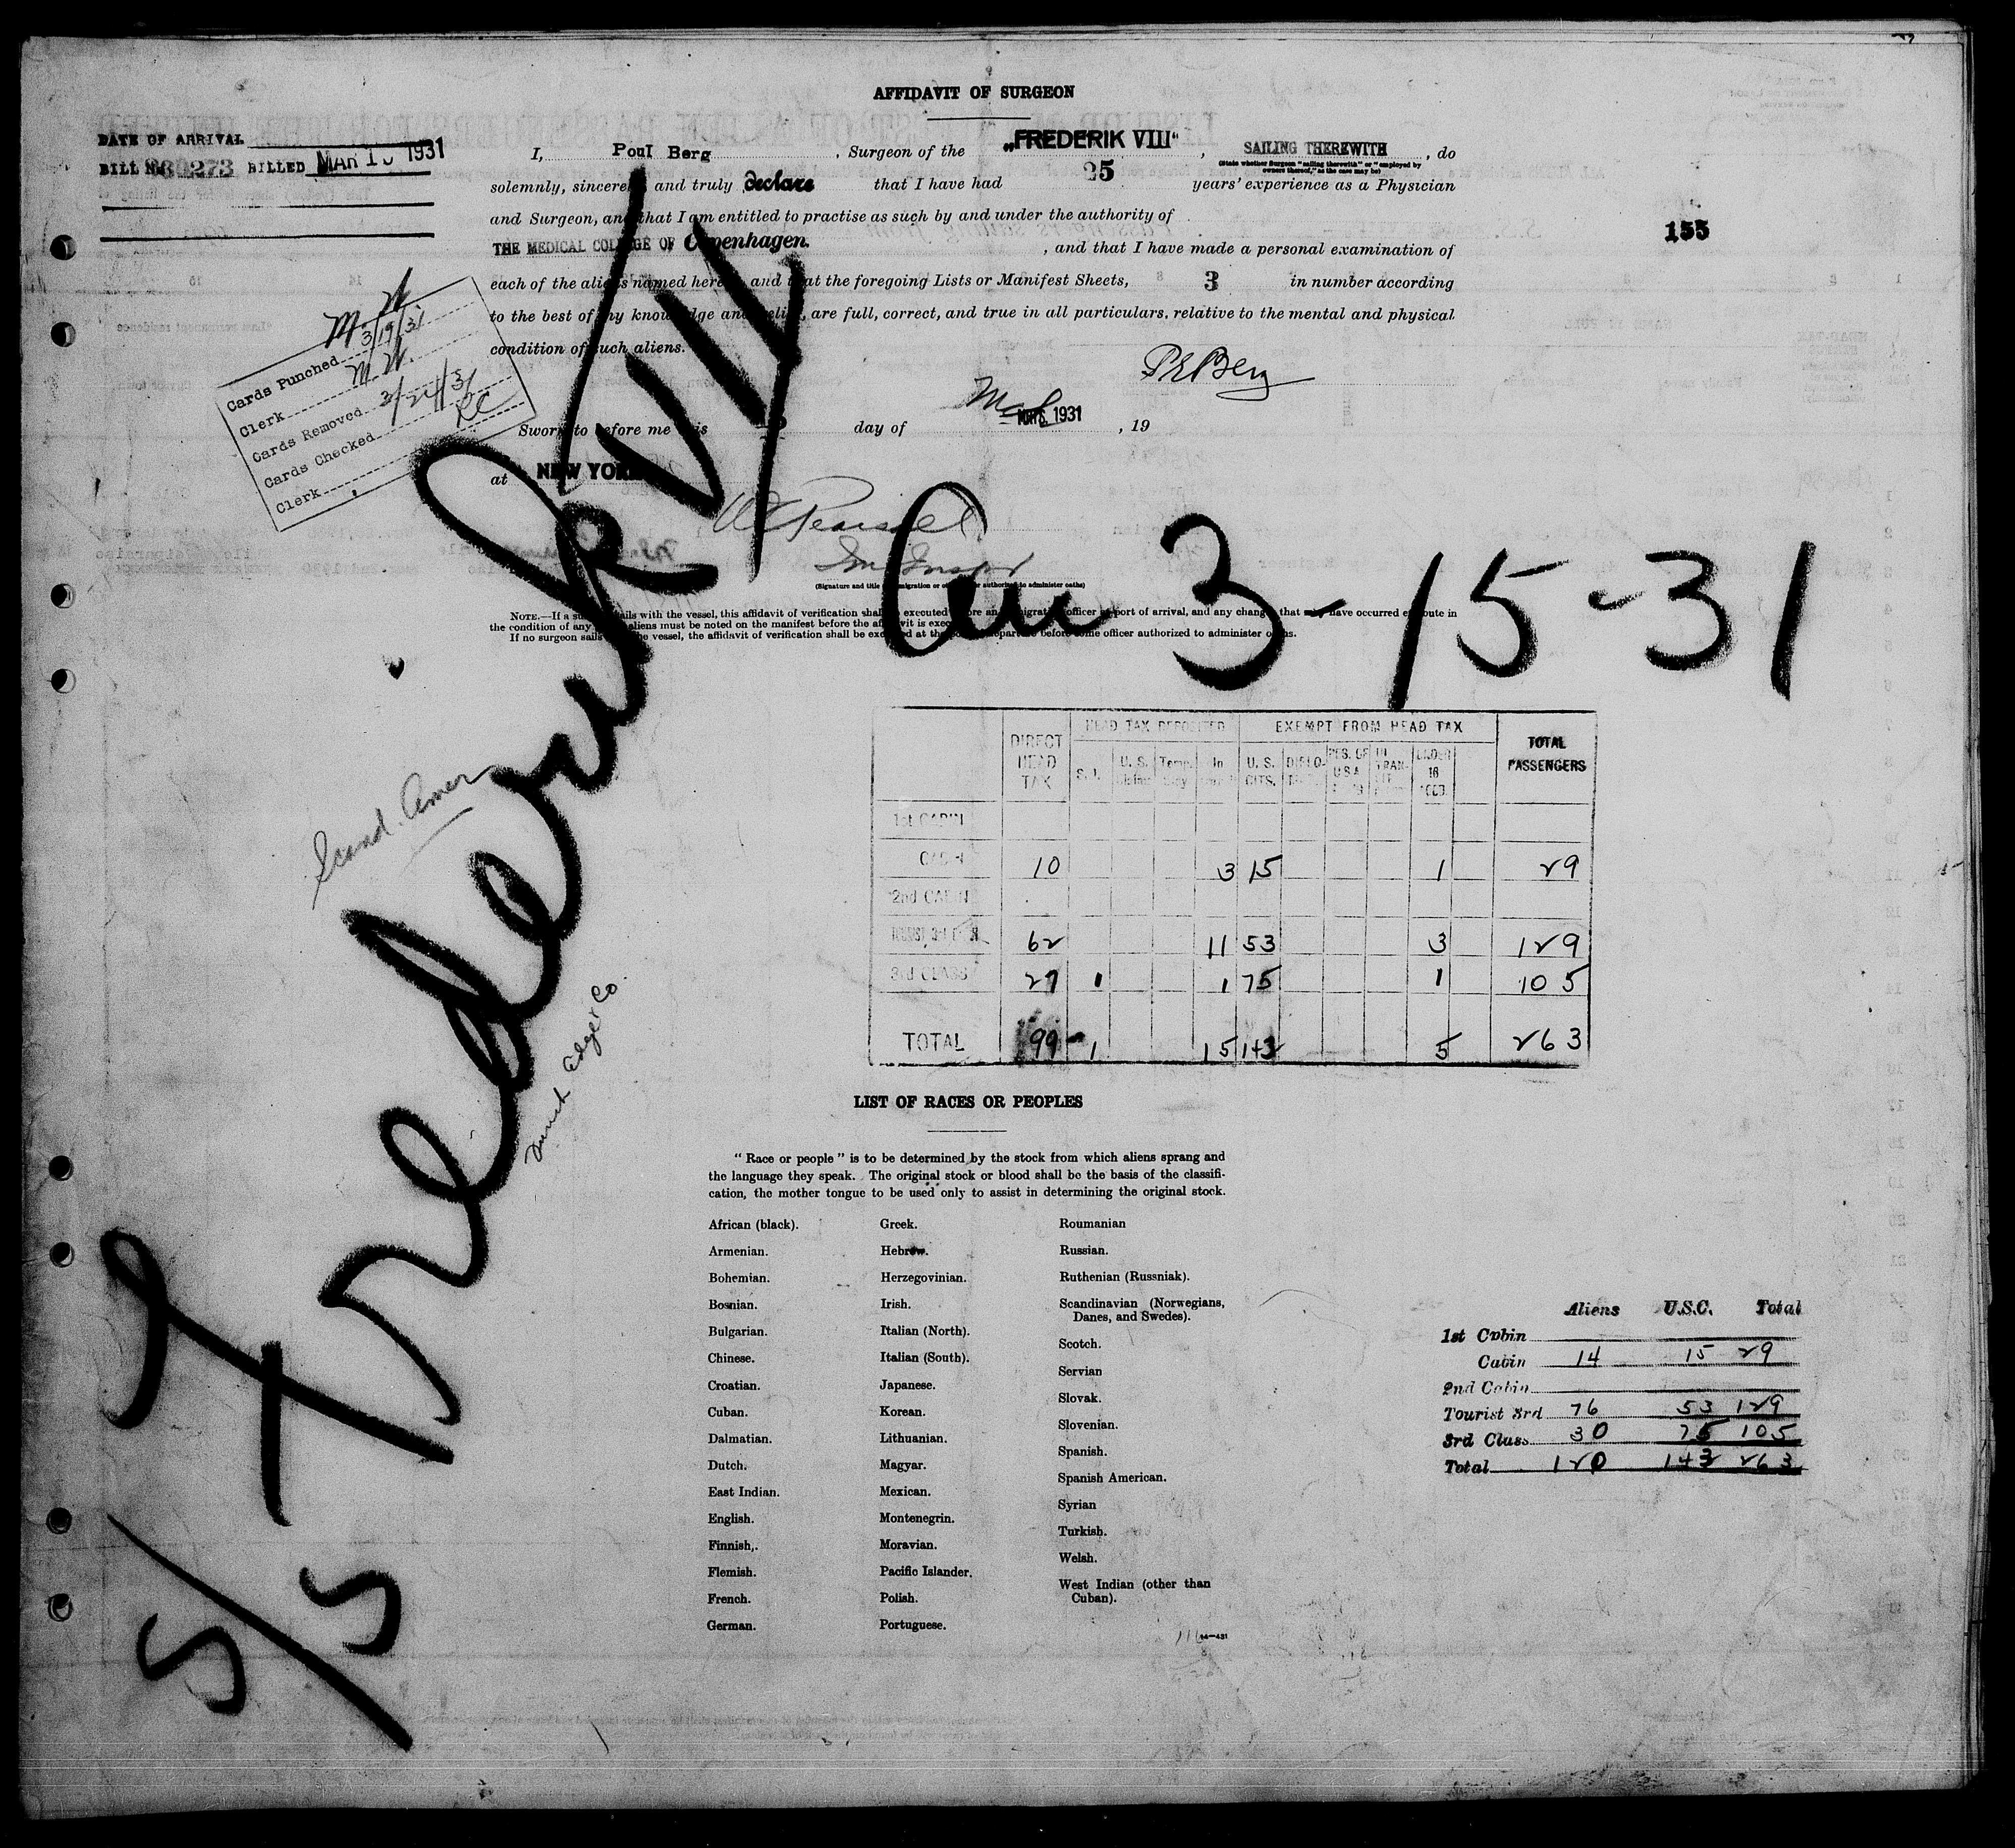 AFFIDAVIT OF SURGEON
DATE OF ARRIVAL
BILL No. 880273 BILLED MAR 1 1931
I, Poul Berg, Surgeon of the „FREDERIK VIII“, SAILING THEREWITH, do
(State whether Surgeon "sailing therewith" or "employed by owners thereof," as the case may be)
solemnly, sincerely and truly declare that I have had 25 years' experience as a Physician
and Surgeon, and that I am entitled to practise as such by and under the authority of
THE MEDICAL COLLEGE OF Copenhagen., and that I have made a personal examination of
155
each of the aliens named herein and that the foregoing Lists or Manifest Sheets, 3 in number according
to the best of my knowledge and belief, are full, correct, and true in all particulars, relative to the mental and physical
condition of such aliens.
P E Berg
M. W
Cards Punched 3/19/31
Clerk M W.
Cards Removed 3/24/31
Cards Checked RC
Clerk
Sworn to before me this day of 1931, 19
at NEW YORK
Im Inspr
(Signature and title of immigration or other officer authorized to administer oaths)
NOTE.—If a surgeon sails with the vessel, this affidavit of verification shall be executed before an immigration officer at port of arrival, and any changes that may have occurred en route in
the condition of any aliens must be noted on the manifest before the affidavit is executed.
If no surgeon sails with the vessel, the affidavit of verification shall be executed at the port of departure before some officer authorized to administer oaths.
S/S Frederik VIII
3-15-31
Scand. Amer
Edge & Co.
DIRECT HEAD TAX HEAD TAX DEPOSITED EXEMPT FROM HEAD TAX TOTAL PASSENGERS
S.I. U.S. Temp. In U.S. CITS. DIPLO- RES. OF USA IN TRAN- UNDER 16
1st CABIN
CABIN 10 3 15 1 29
2nd CABIN
TOURIST 3rd 62 11 53 3 129
3rd CLASS 27 1 1 75 1 105
TOTAL 99 1 15 143 5 263
LIST OF RACES OR PEOPLES
"Race or people" is to be determined by the stock from which aliens sprang and
the language they speak. The original stock or blood shall be the basis of the classifi-
cation, the mother tongue to be used only to assist in determining the original stock.
African (black).
Armenian.
Bohemian.
Bosnian.
Bulgarian.
Chinese.
Croatian.
Cuban.
Dalmatian.
Dutch.
East Indian.
English.
Finnish.
Flemish.
French.
German.
Greek.
Hebrew.
Herzegovinian.
Irish.
Italian (North).
Italian (South).
Japanese.
Korean.
Lithuanian.
Magyar.
Mexican.
Montenegrin.
Moravian.
Pacific Islander.
Polish.
Portuguese.
Roumanian
Russian.
Ruthenian (Russniak).
Scandinavian (Norwegians,
Danes, and Swedes).
Scotch.
Servian
Slovak.
Slovenian.
Spanish.
Spanish American.
Syrian
Turkish.
Welsh.
West Indian (other than
Cuban).
14—431
Aliens U.S.C. Total
1st Cabin
Cabin 14 15 29
2nd Cabin
Tourist 3rd 76 53 129
3rd Class 30 75 105
Total 120 143 263